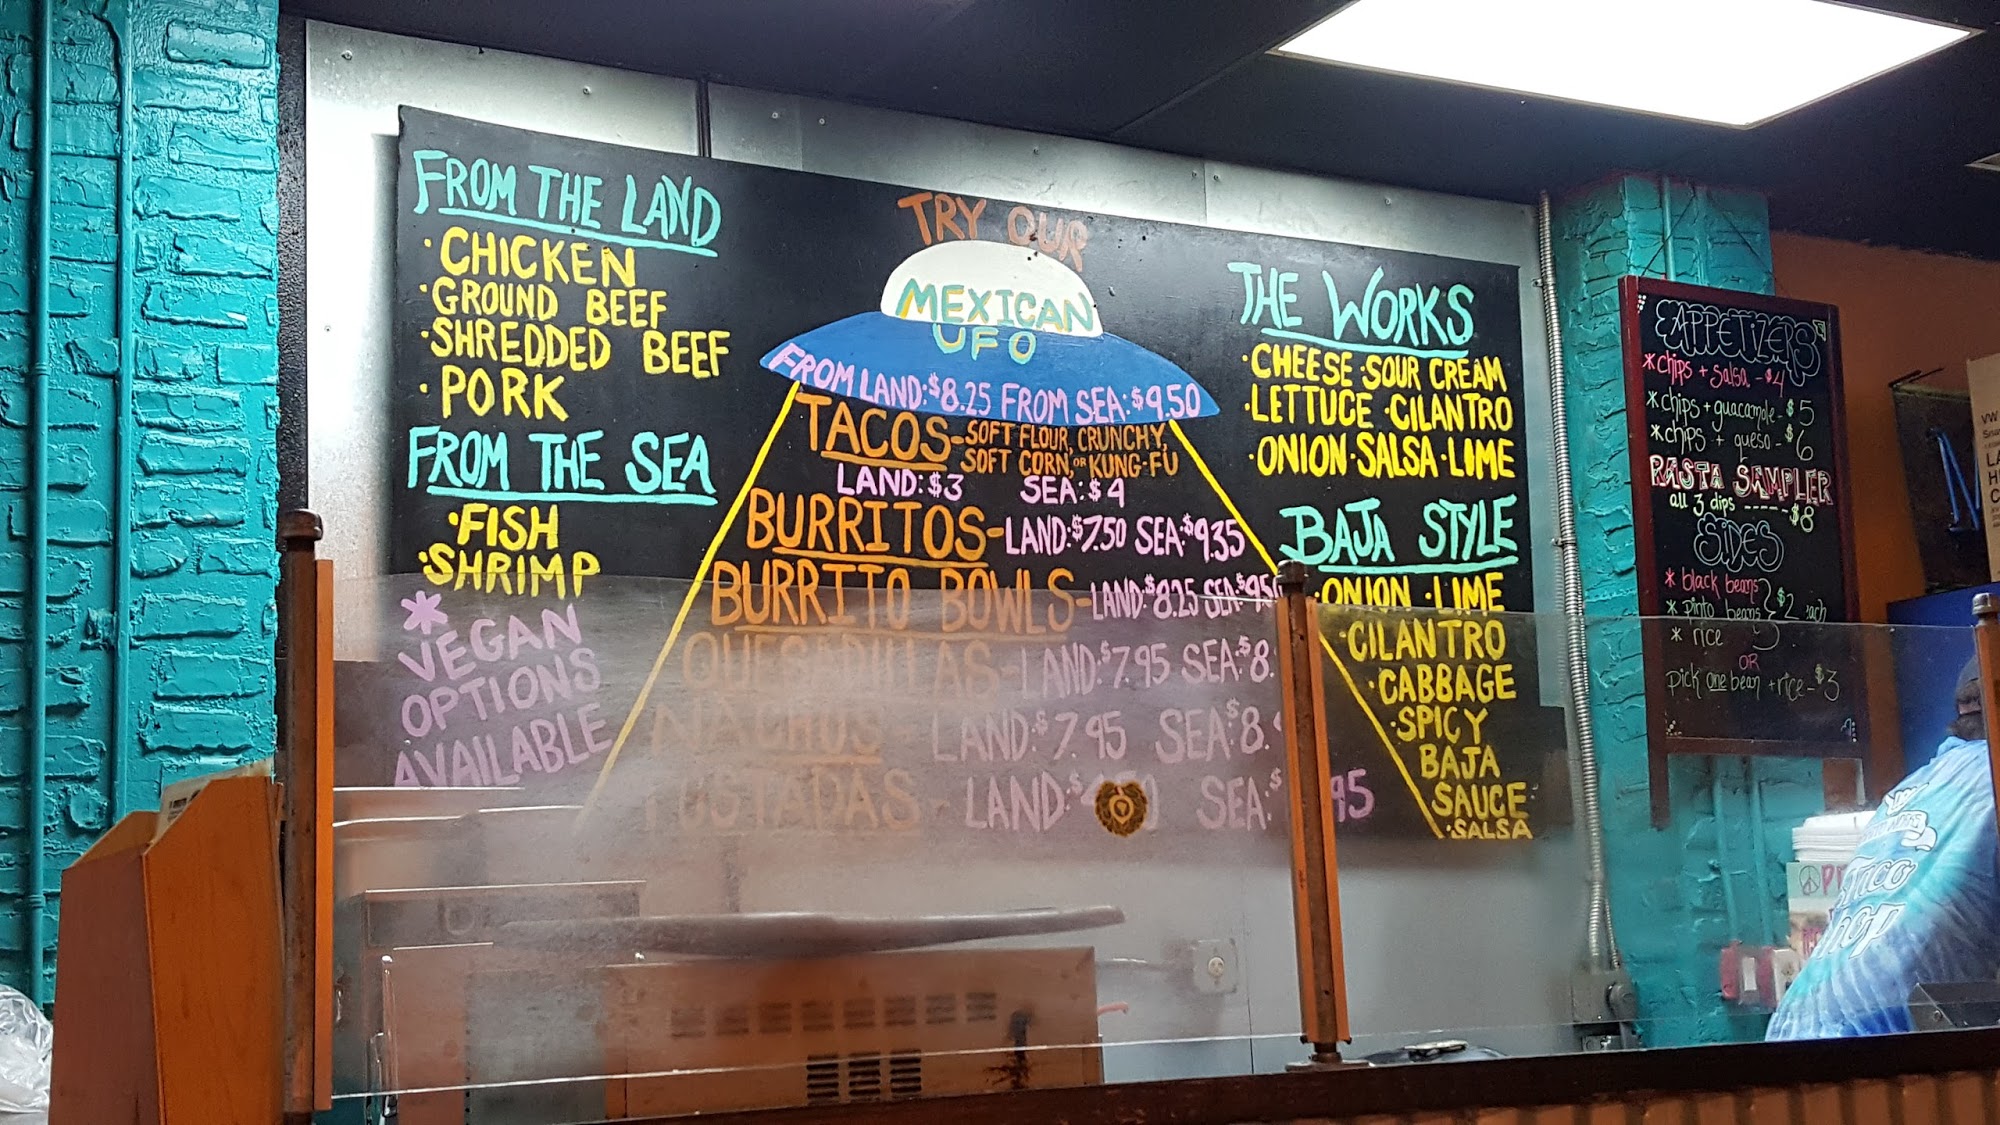 FROM THE LAND
·CHICKEN
·GROUND BEEF
·SHREDDED BEEF
·PORK
FROM THE SEA
·FISH
·SHRIMP
* VEGAN
OPTIONS
AVAILABLE
TRY OUR
MEXICAN
UFO
FROM LAND:$8.25 FROM SEA:$9.50
TACOS-SOFT FLOUR, CRUNCHY,
SOFT CORN, OR KUNG-FU
LAND:$3 SEA:$4
BURRITOS-LAND:$7.50 SEA:$9.35
BURRITO BOWLS-LAND:$8.25 SEA:$9.50
QUESADILLAS-LAND:$7.95 SEA:$8.
NACHOS- LAND:$7.95 SEA:$8.
TOSTADAS- LAND:$ SEA:$ 95
THE WORKS
·CHEESE·SOUR CREAM
·LETTUCE·CILANTRO
·ONION·SALSA·LIME
BAJA STYLE
·ONION ·LIME
·CILANTRO
·CABBAGE
·SPICY
BAJA
SAUCE
·SALSA
APPETIZERS
*chips + salsa - $4
*chips + guacamole - $5
*chips + queso - $6
RASTA SAMPLER
all 3 dips ----- $8
SIDES
* black beans
* pinto beans } $2 each
* rice
OR
pick one bean + rice - $3
VW